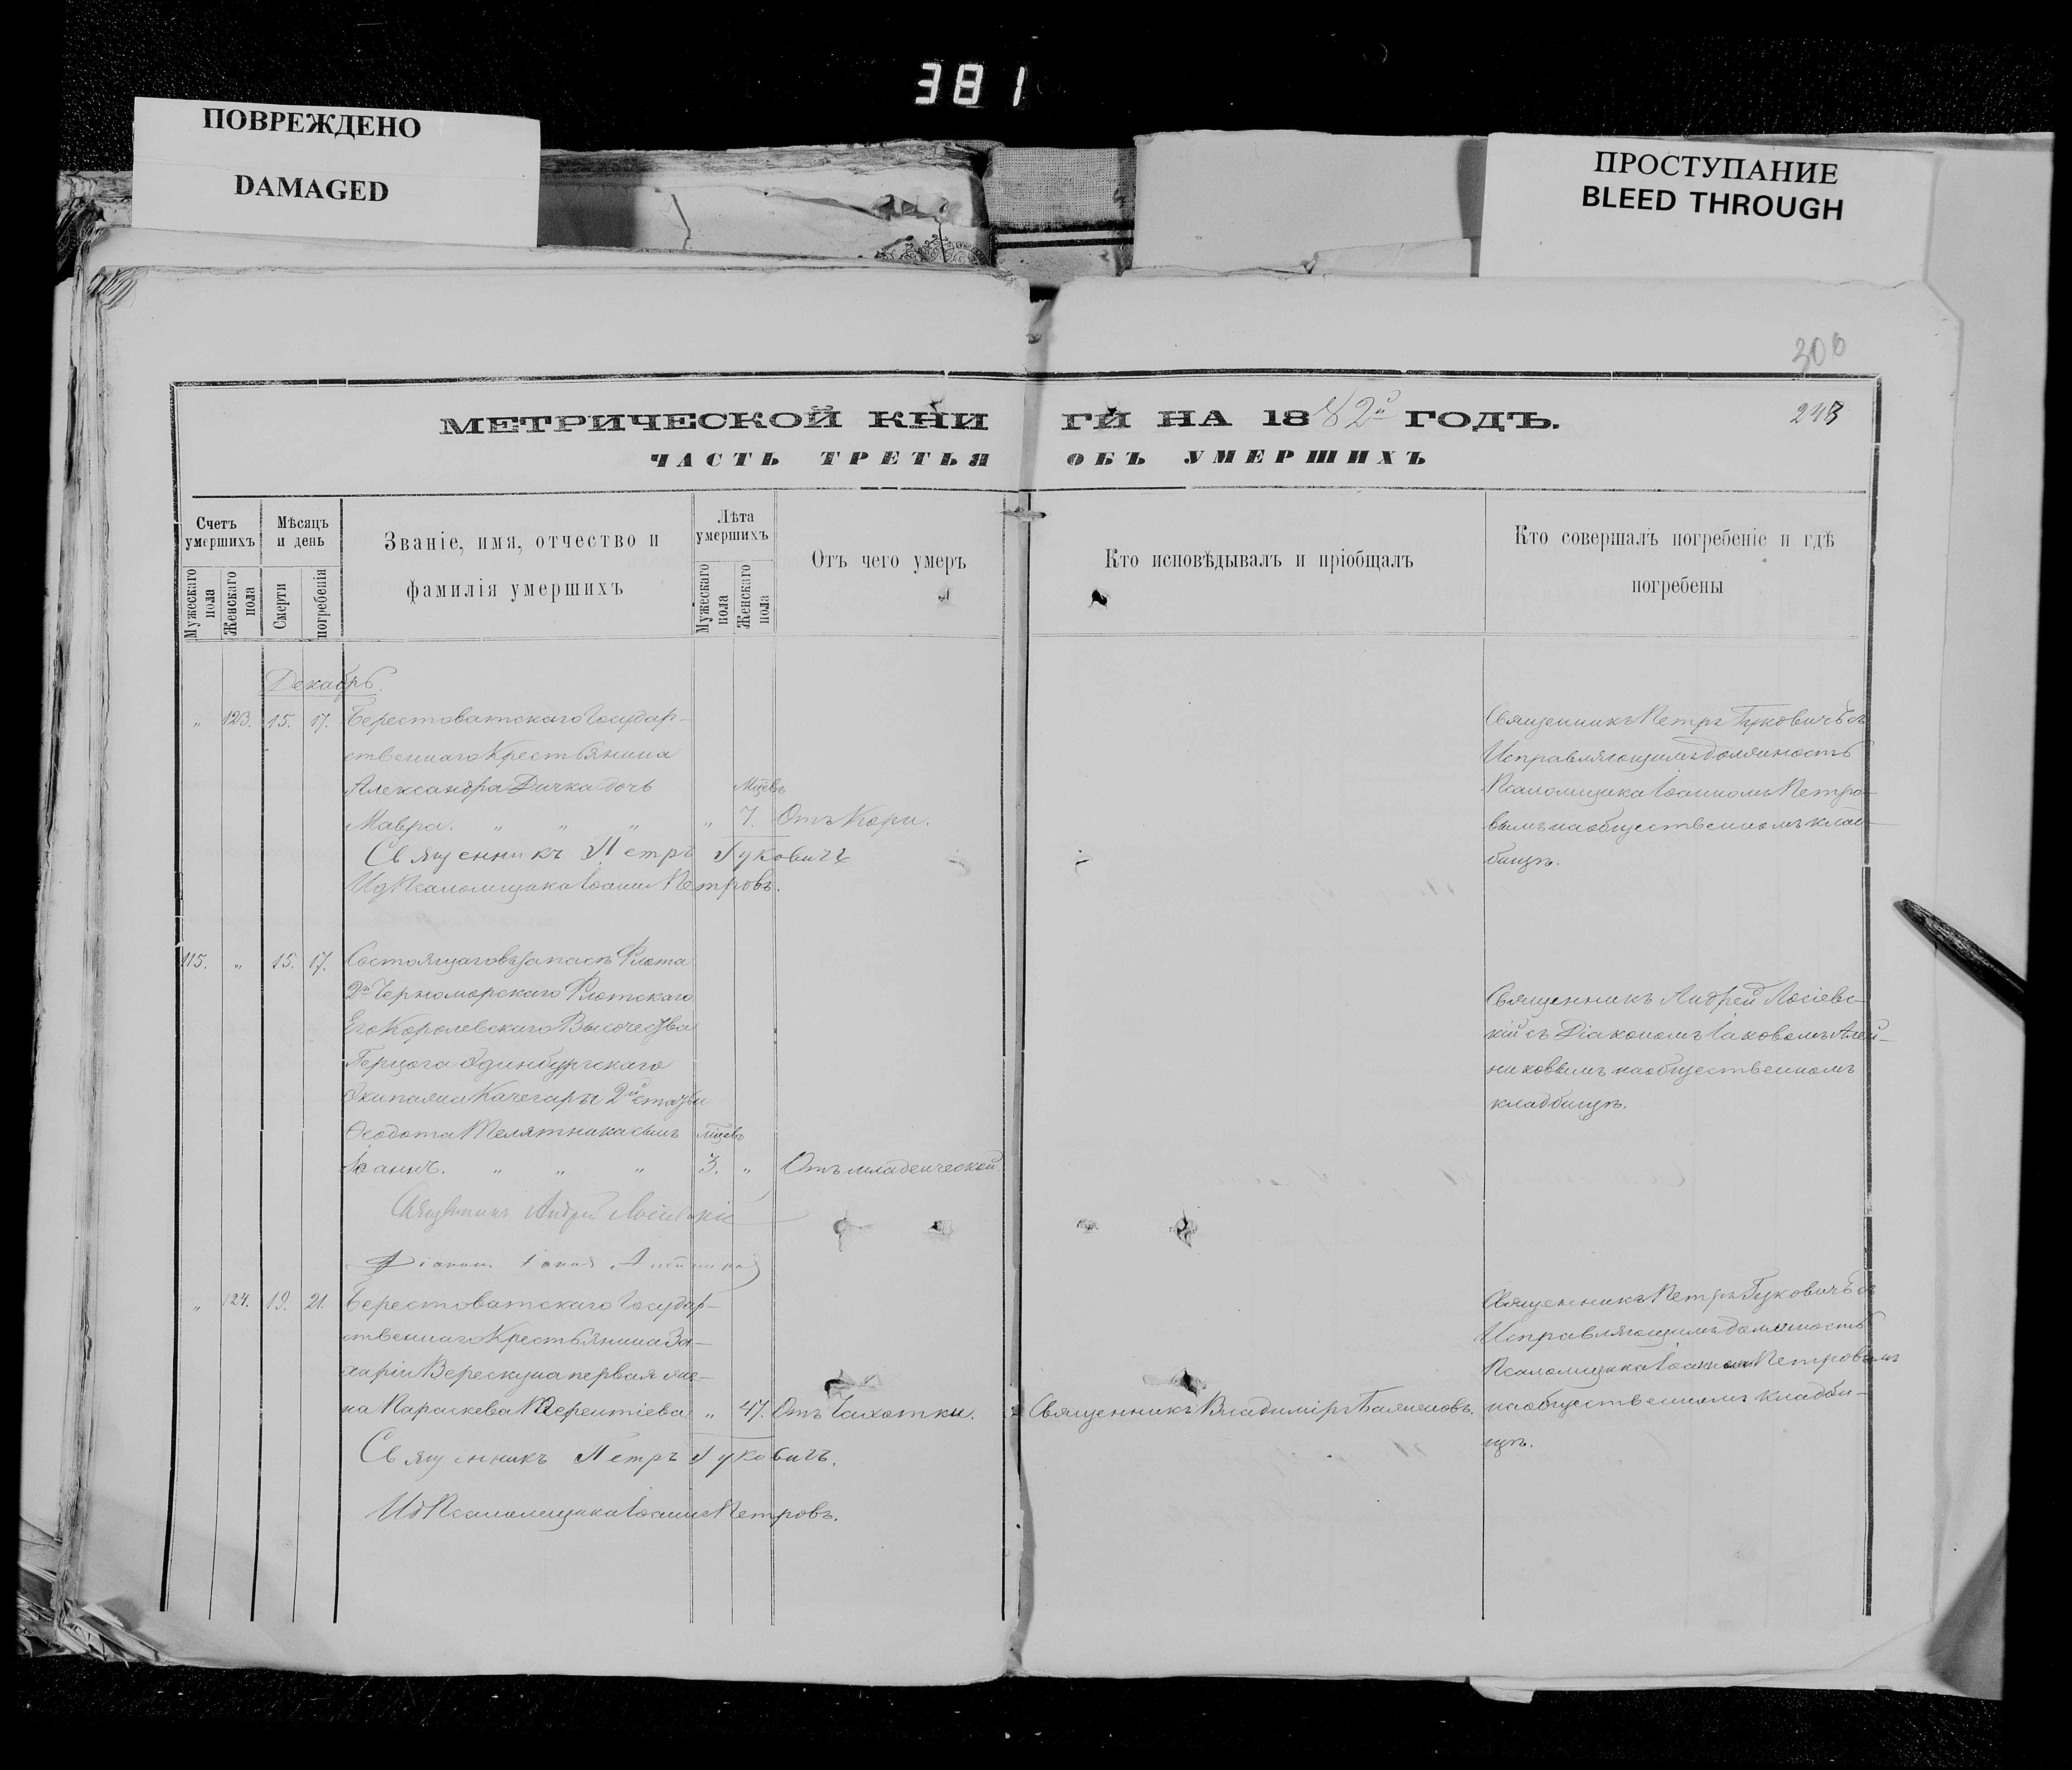 381
ПОВРЕЖДЕНО
DAMAGED
ПРОСТУПАНИЕ
BLEED THROUGH
300
МЕТРИЧЕСКОЙ КНИГИ НА 1882й ГОДЪ.
ЧАСТЬ ТРЕТЬЯ ОБЪ УМЕРШИХЪ
Счетъ умершихъ
Мужескаго пола
Женскаго пола
Мѣсяцъ и день
Смерти
погребенія
Званіе, имя, отчество и
фамилія умершихъ
Лѣта умершихъ
Мужескаго пола
Женскаго пола
Отъ чего умеръ
Кто исповѣдывалъ и пріобщалъ
Кто совершалъ погребеніе и гдѣ
погребены
Декабрь.
„ 123. 15. 17. Берестоватскаго Государ-
ственнаго Крестьянина
Александра Дичка дочь Мцевъ
Мавра. „ „ „ „ 7. Отъ Кори.
Священникъ Петръ Гуковичъ съ
Исправляющимъ должность
Псаломщика Іоанномъ Петро-
вымъ на общественномъ клад-
бищѣ.
Священникъ Петръ Гуковичъ
Ид Псаломщика Іоаннъ Петровъ.
115. „ 15. 17. Состоящаго въ запасѣ Флота
2го Черноморскаго Флотскаго
Его Королевскаго Высочества
Герцога Эдинбургскаго
Экипажа Кочегара 2й статьи
Ѳеодота Телятника сынъ мцевъ
Іоаннъ. „ „ „ 3. „ Отъ младенческой.
Священникъ Андрей Лосіевс-
кій съ Діакономъ Іаковомъ Алей-
никовымъ на общественномъ
кладбищѣ.
Священникъ Андрей Лосіевскій
Діаконъ Іаковъ
„ 124. 19. 21. Берестоватскаго Государ-
ственнаго Крестьянина За-
харіи Верескуна первая же-
на Параскева Терентіева „ 47. Отъ Чахотки.
Священникъ Владиміръ Баженовъ.
Священникъ Петръ Гуковичъ съ
Исправляющимъ должность
Псаломщика Іоанномъ Петровымъ
на общественномъ кладби-
щѣ.
Священникъ Петръ Гуковичъ.
Ид Псаломщика Іоаннъ Петровъ.